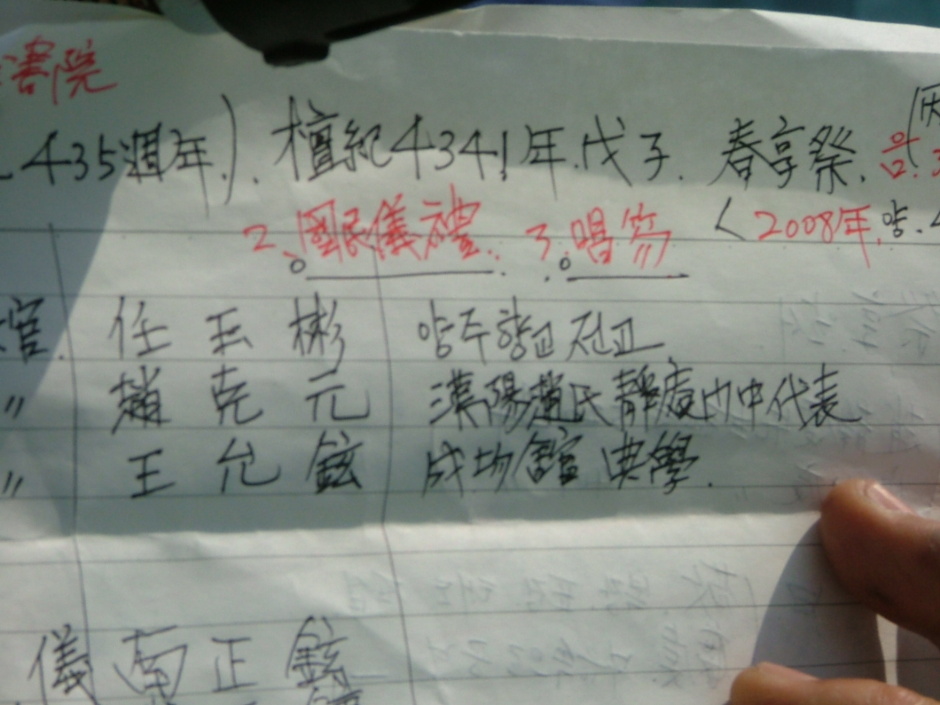 書院
435週年). 檀紀4341年.戊子. 春享祭. 음.3
2、國民儀禮. 3、唱笏 〈2008年.양.4
官. 任王彬 양주향교 전교
〃 趙克元 漢陽趙氏靜庵門中代表
〃 王允鉉 成均館 典學.
儀 南正鉉